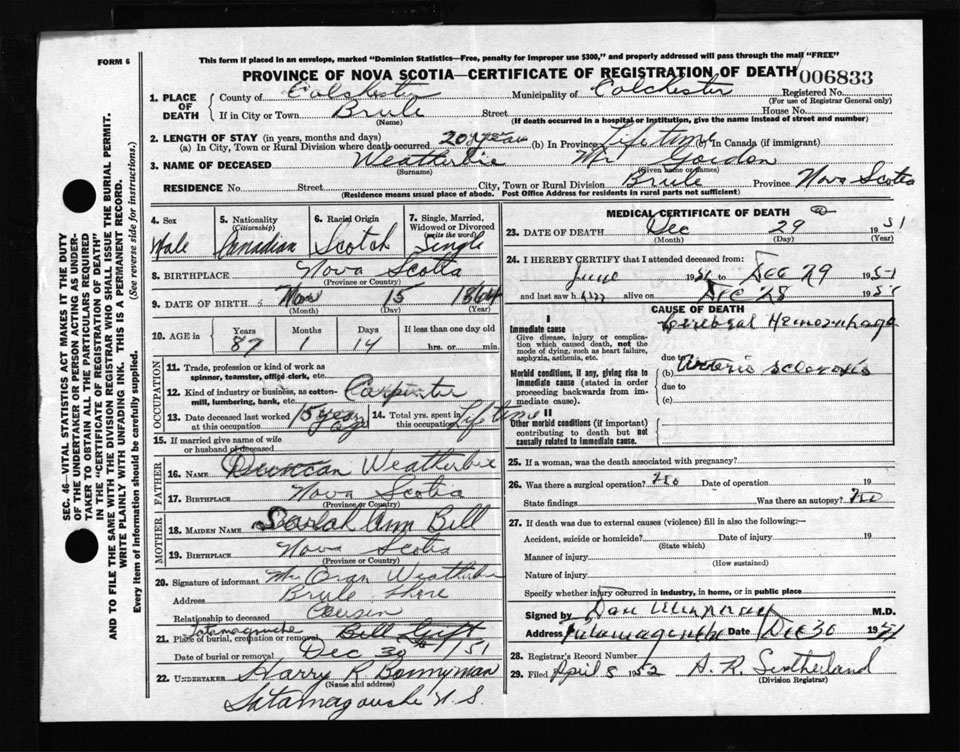 FORM 6
This form if placed in an envelope, marked "Dominion Statistics—Free, penalty for improper use $300," and properly addressed will pass through the mail "FREE"
PROVINCE OF NOVA SCOTIA—CERTIFICATE OF REGISTRATION OF DEATH 006833
1. PLACE OF DEATH
County of Colchester Municipality of Colchester Registered No.
(For use of Registrar General only)
If in City or Town Brule Street House No.
(Name) (If death occurred in a hospital or institution, give the name instead of street and number)
2. LENGTH OF STAY (in years, months and days)
(a) In City, Town or Rural Division where death occurred 20 years (b) In Province Lifetime (c) In Canada (if immigrant)
3. NAME OF DECEASED Weatherbie Mr Gordon
(Surname) (Given name or names)
RESIDENCE No. Street City, Town or Rural Division Brule Province Nova Scotia
(Residence means usual place of abode. Post Office Address for residents in rural parts not sufficient)
4. Sex
Male
5. Nationality (Citizenship)
Canadian
6. Racial Origin
Scotch
7. Single, Married, Widowed or Divorced (write the word)
Single
8. BIRTHPLACE Nova Scotia
(Province or Country)
9. DATE OF BIRTH Nov 15 1864
(Month) (Day) (Year)
10. AGE in
Years Months Days If less than one day old
87 1 14 hrs. or min.
OCCUPATION
11. Trade, profession or kind of work as spinner, teamster, office clerk, etc.
12. Kind of industry or business, as cotton-mill, lumbering, bank, etc. Carpenter
13. Date deceased last worked at this occupation 15 years ago
14. Total yrs. spent in this occupation Lifetime
15. If married give name of wife or husband of deceased
FATHER
16. NAME Duncan Weatherbie
17. BIRTHPLACE Nova Scotia
(Province or Country)
MOTHER
18. MAIDEN NAME Sarah Ann Bell
19. BIRTHPLACE Nova Scotia
(Province or Country)
20. Signature of informant Mr Oran Weatherbie
Address Brule Shore
Relationship to deceased Cousin
Tatamagouche
21. Place of burial, cremation or removal Bill
Date of burial or removal Dec 30th /51
22. UNDERTAKER Harry R. Bonnyman
(Name and address)
Tatamagouche N.S.
MEDICAL CERTIFICATE OF DEATH
23. DATE OF DEATH Dec 29 1951
(Month) (Day) (Year)
24. I HEREBY CERTIFY that I attended deceased from:
June 1951 to Dec 29 1951
and last saw him alive on Dec 28 1951
CAUSE OF DEATH
I
Immediate cause
Give disease, injury or complication which caused death, not the mode of dying, such as heart failure, asphyxia, asthenia, etc.
Cerebral Hemorrhage
due to
Morbid conditions, if any, giving rise to immediate cause (stated in order proceeding backwards from immediate cause).
(b) Arterio sclerosis
due to
(c)
II
Other morbid conditions (if important) contributing to death but not causally related to immediate cause.
25. If a woman, was the death associated with pregnancy?
26. Was there a surgical operation? No Date of operation 19
State findings Was there an autopsy? No
27. If death was due to external causes (violence) fill in also the following:—
Accident, suicide or homicide? Date of injury 19
(State which)
Manner of injury
(How sustained)
Nature of injury
Specify whether injury occurred in industry, in home, or in public place
Signed by Dan Murray M.D.
Address Tatamagouche Date Dec 30 1951
28. Registrar's Record Number
29. Filed April 8 1952 A. R. Sutherland
(Division Registrar)
SEC. 46—VITAL STATISTICS ACT MAKES IT THE DUTY
OF THE UNDERTAKER OR PERSON ACTING AS UNDER-
TAKER TO OBTAIN ALL THE PARTICULARS REQUIRED
IN THE "CERTIFICATE OF REGISTRATION OF DEATH"
AND TO FILE THE SAME WITH THE DIVISION REGISTRAR WHO SHALL ISSUE THE BURIAL PERMIT.
WRITE PLAINLY WITH UNFADING INK. THIS IS A PERMANENT RECORD.
Every item of information should be carefully supplied. (See reverse side for instructions.)